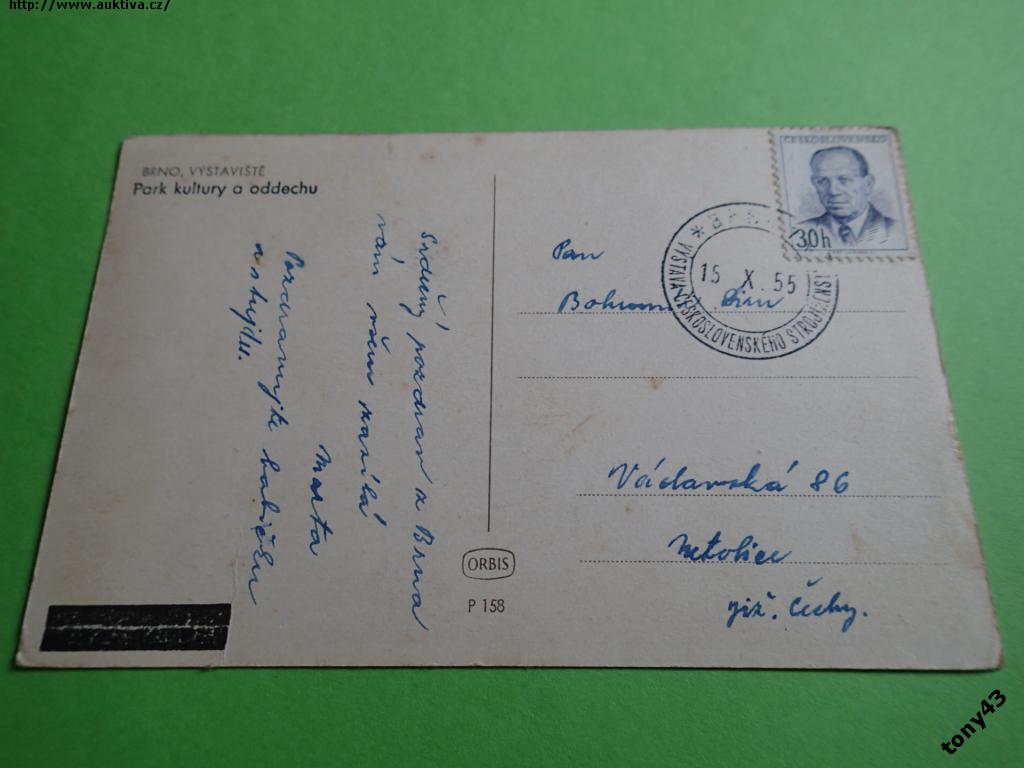 http://www.auktiva.cz/
BRNO, VÝSTAVIŠTĚ
Park kultury a oddechu
Srdečný pozdrav z Brna
vám všem zasílá
Marta
Pozdravujte babičku
a
ČESKOSLOVENSKO
30h
* BRNO
15 X. 55
VÝSTAVA ČESKOSLOVENSKÉHO
Pan
Václavská 86
Netolice
již. Čechy.
ORBIS
P 158
tony43